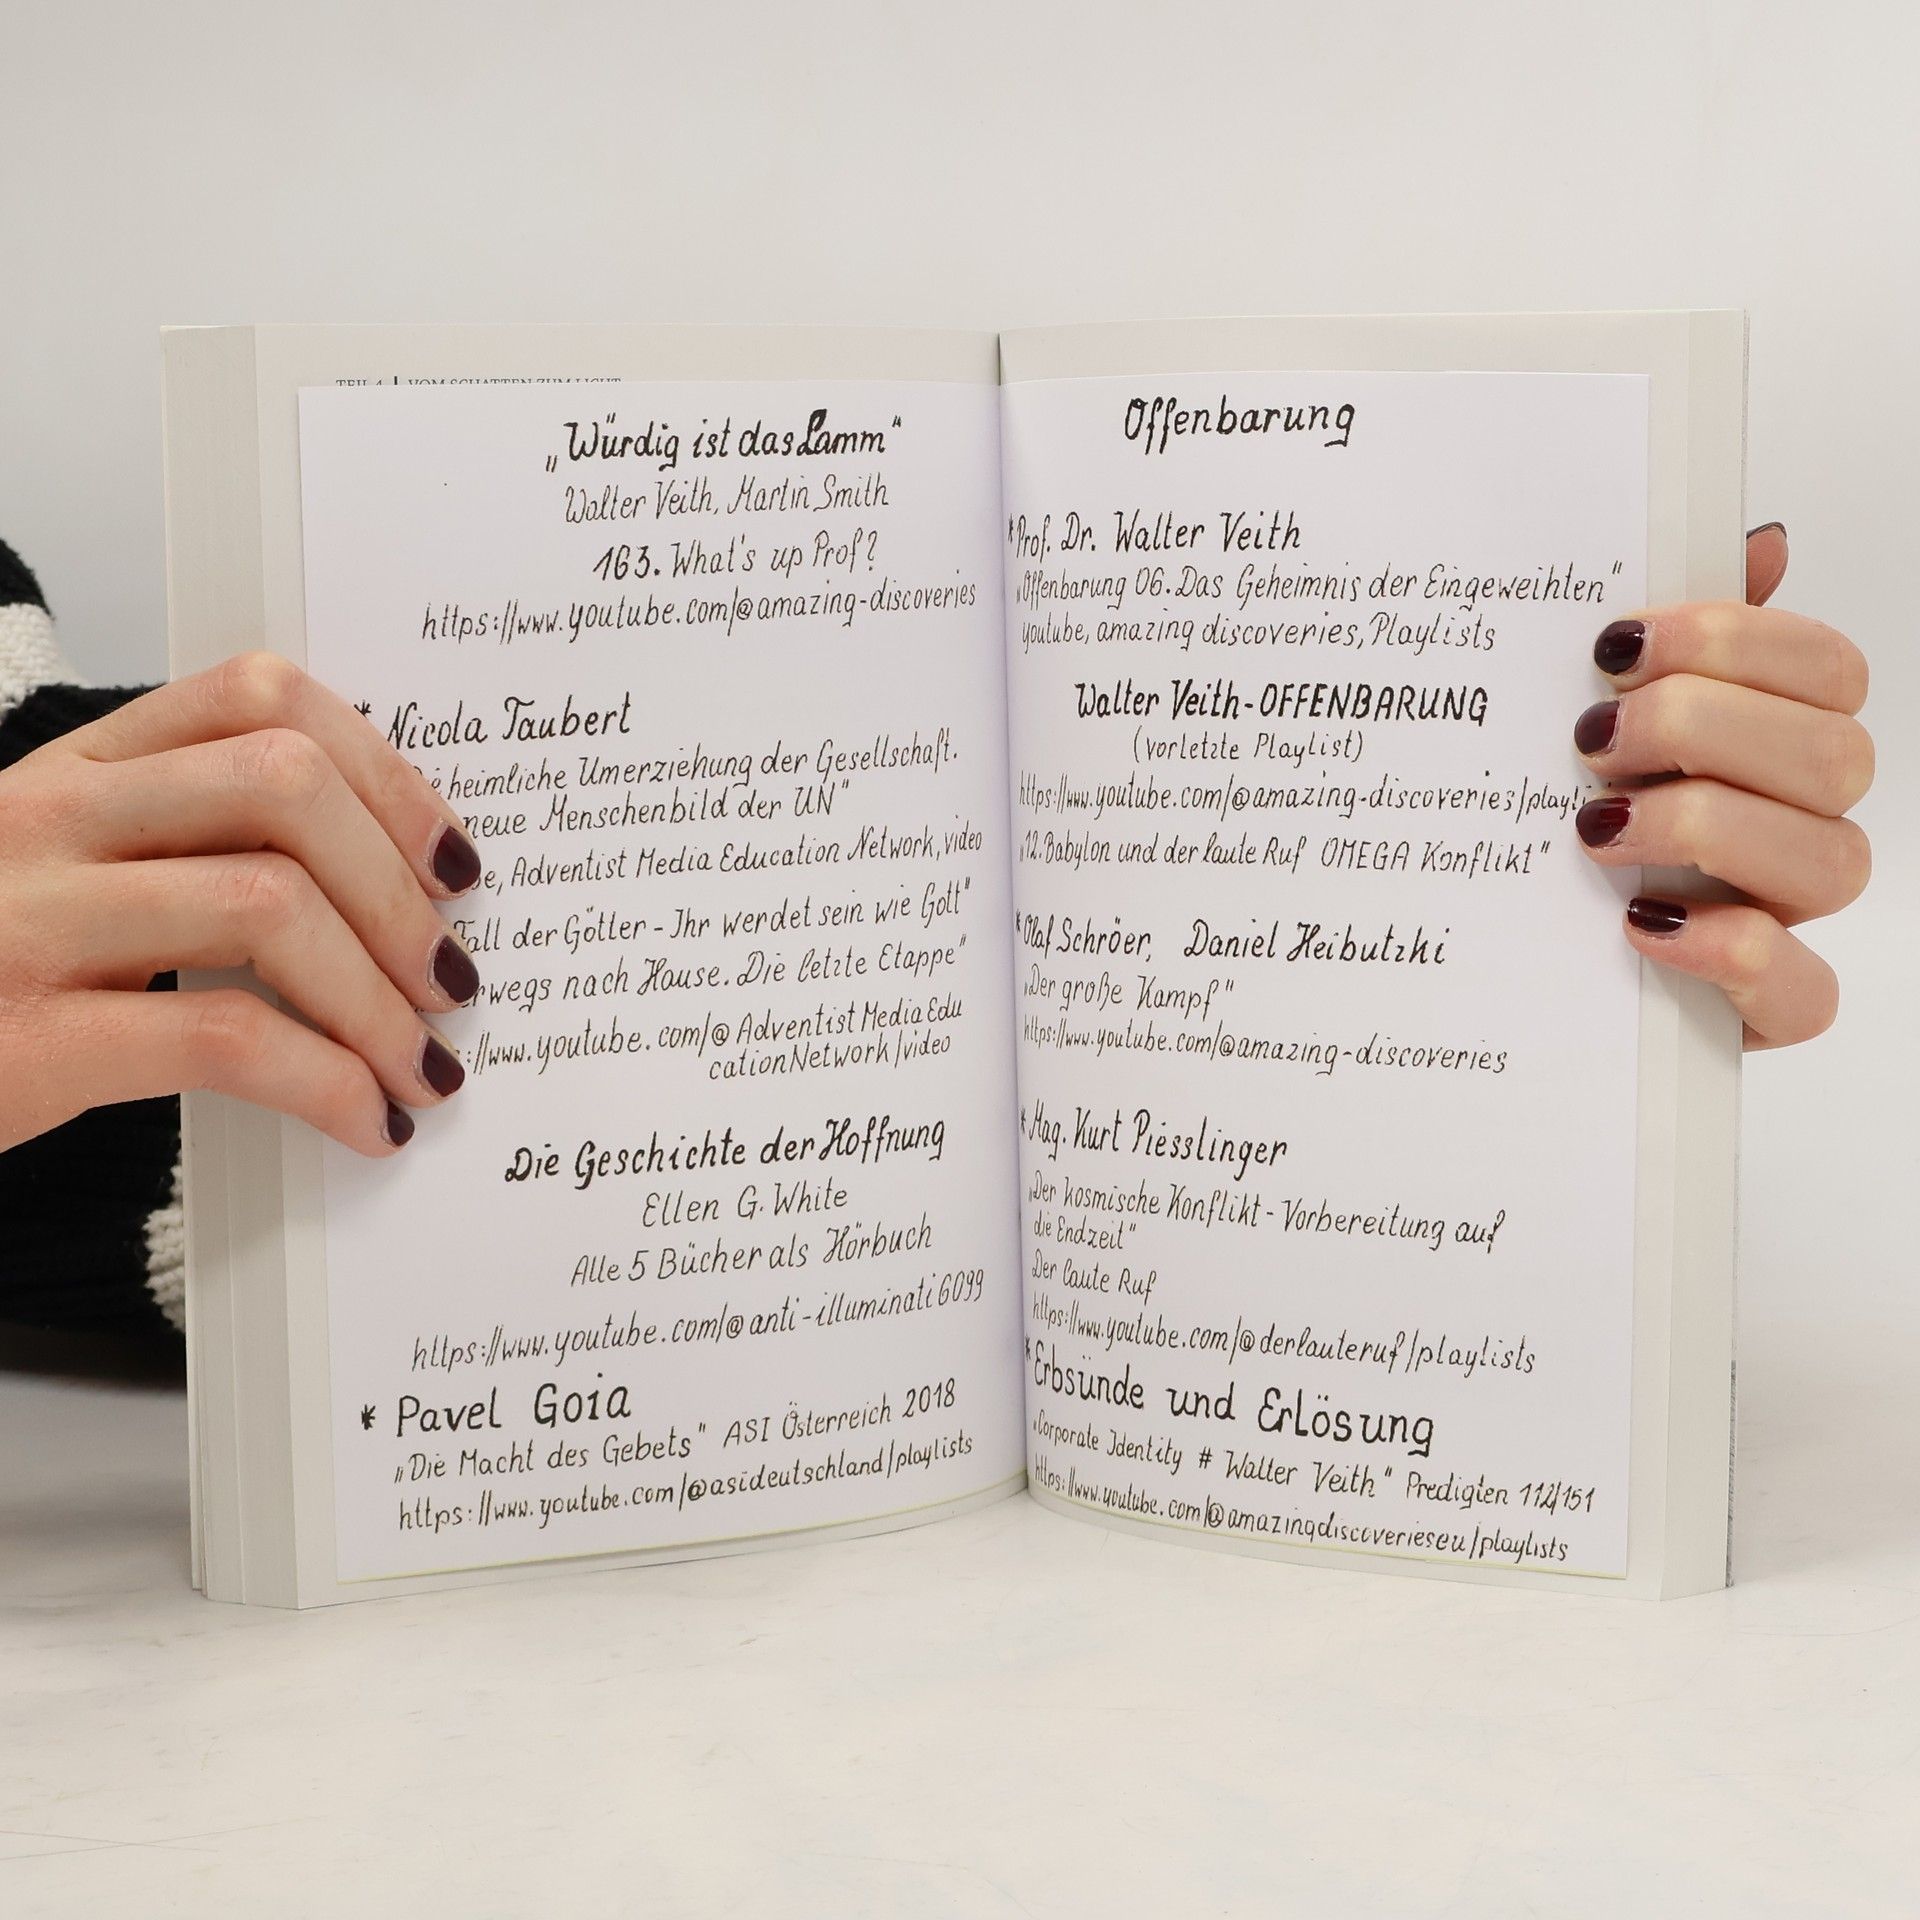 TEIL 4 | VOM SCHATTEN ZUM LICHT
„Würdig ist das Lamm“
Walter Veith, Martin Smith
163. What's up Prof?
https://www.youtube.com/@amazing-discoveries
* Nicola Taubert
heimliche Umerziehung der Gesellschaft.
neue Menschenbild der UN“
be, Adventist Media Education Network, video
Fall der Götter - Ihr werdet sein wie Gott“
erwegs nach Hause. Die letzte Etappe“
://www.youtube.com/@Adventist Media Edu
cationNetwork/video
Die Geschichte der Hoffnung
Ellen G. White
Alle 5 Bücher als Hörbuch
https://www.youtube.com/@anti-illuminati6099
* Pavel Goia
„Die Macht des Gebets“ ASI Österreich 2018
https://www.youtube.com/@asideutschland/playlists
Offenbarung
*Prof. Dr. Walter Veith
„Offenbarung 06. Das Geheimnis der Eingeweihten“
youtube, amazing discoveries, Playlists
Walter Veith-OFFENBARUNG
(vorletzte Playlist)
https://www.youtube.com/@amazing-discoveries/playli
„12. Babylon und der laute Ruf OMEGA Konflikt“
*Olaf Schröer, Daniel Heibutzki
„Der große Kampf“
https://www.youtube.com/@amazing-discoveries
*Mag. Kurt Piesslinger
„Der kosmische Konflikt - Vorbereitung auf
die Endzeit“
Der laute Ruf
https://www.youtube.com/@derlauteruf/playlists
*Erbsünde und Erlösung
„Corporate Identity # Walter Veith“ Predigten 112/151
https://www.youtube.com/@amazingdiscoverieseu/playlists